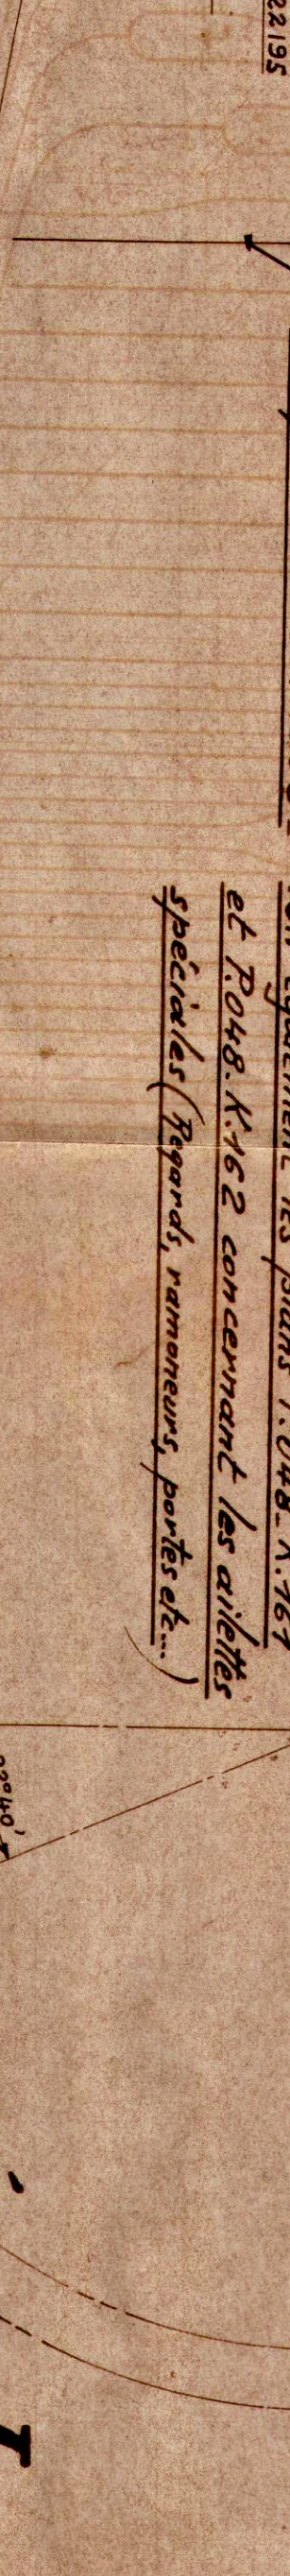 22195
également les plans P.048-K.161
et P.048-K.162 concernant les ailettes
spéciales (Regards, ramoneurs, portes etc...)
22°40'
I